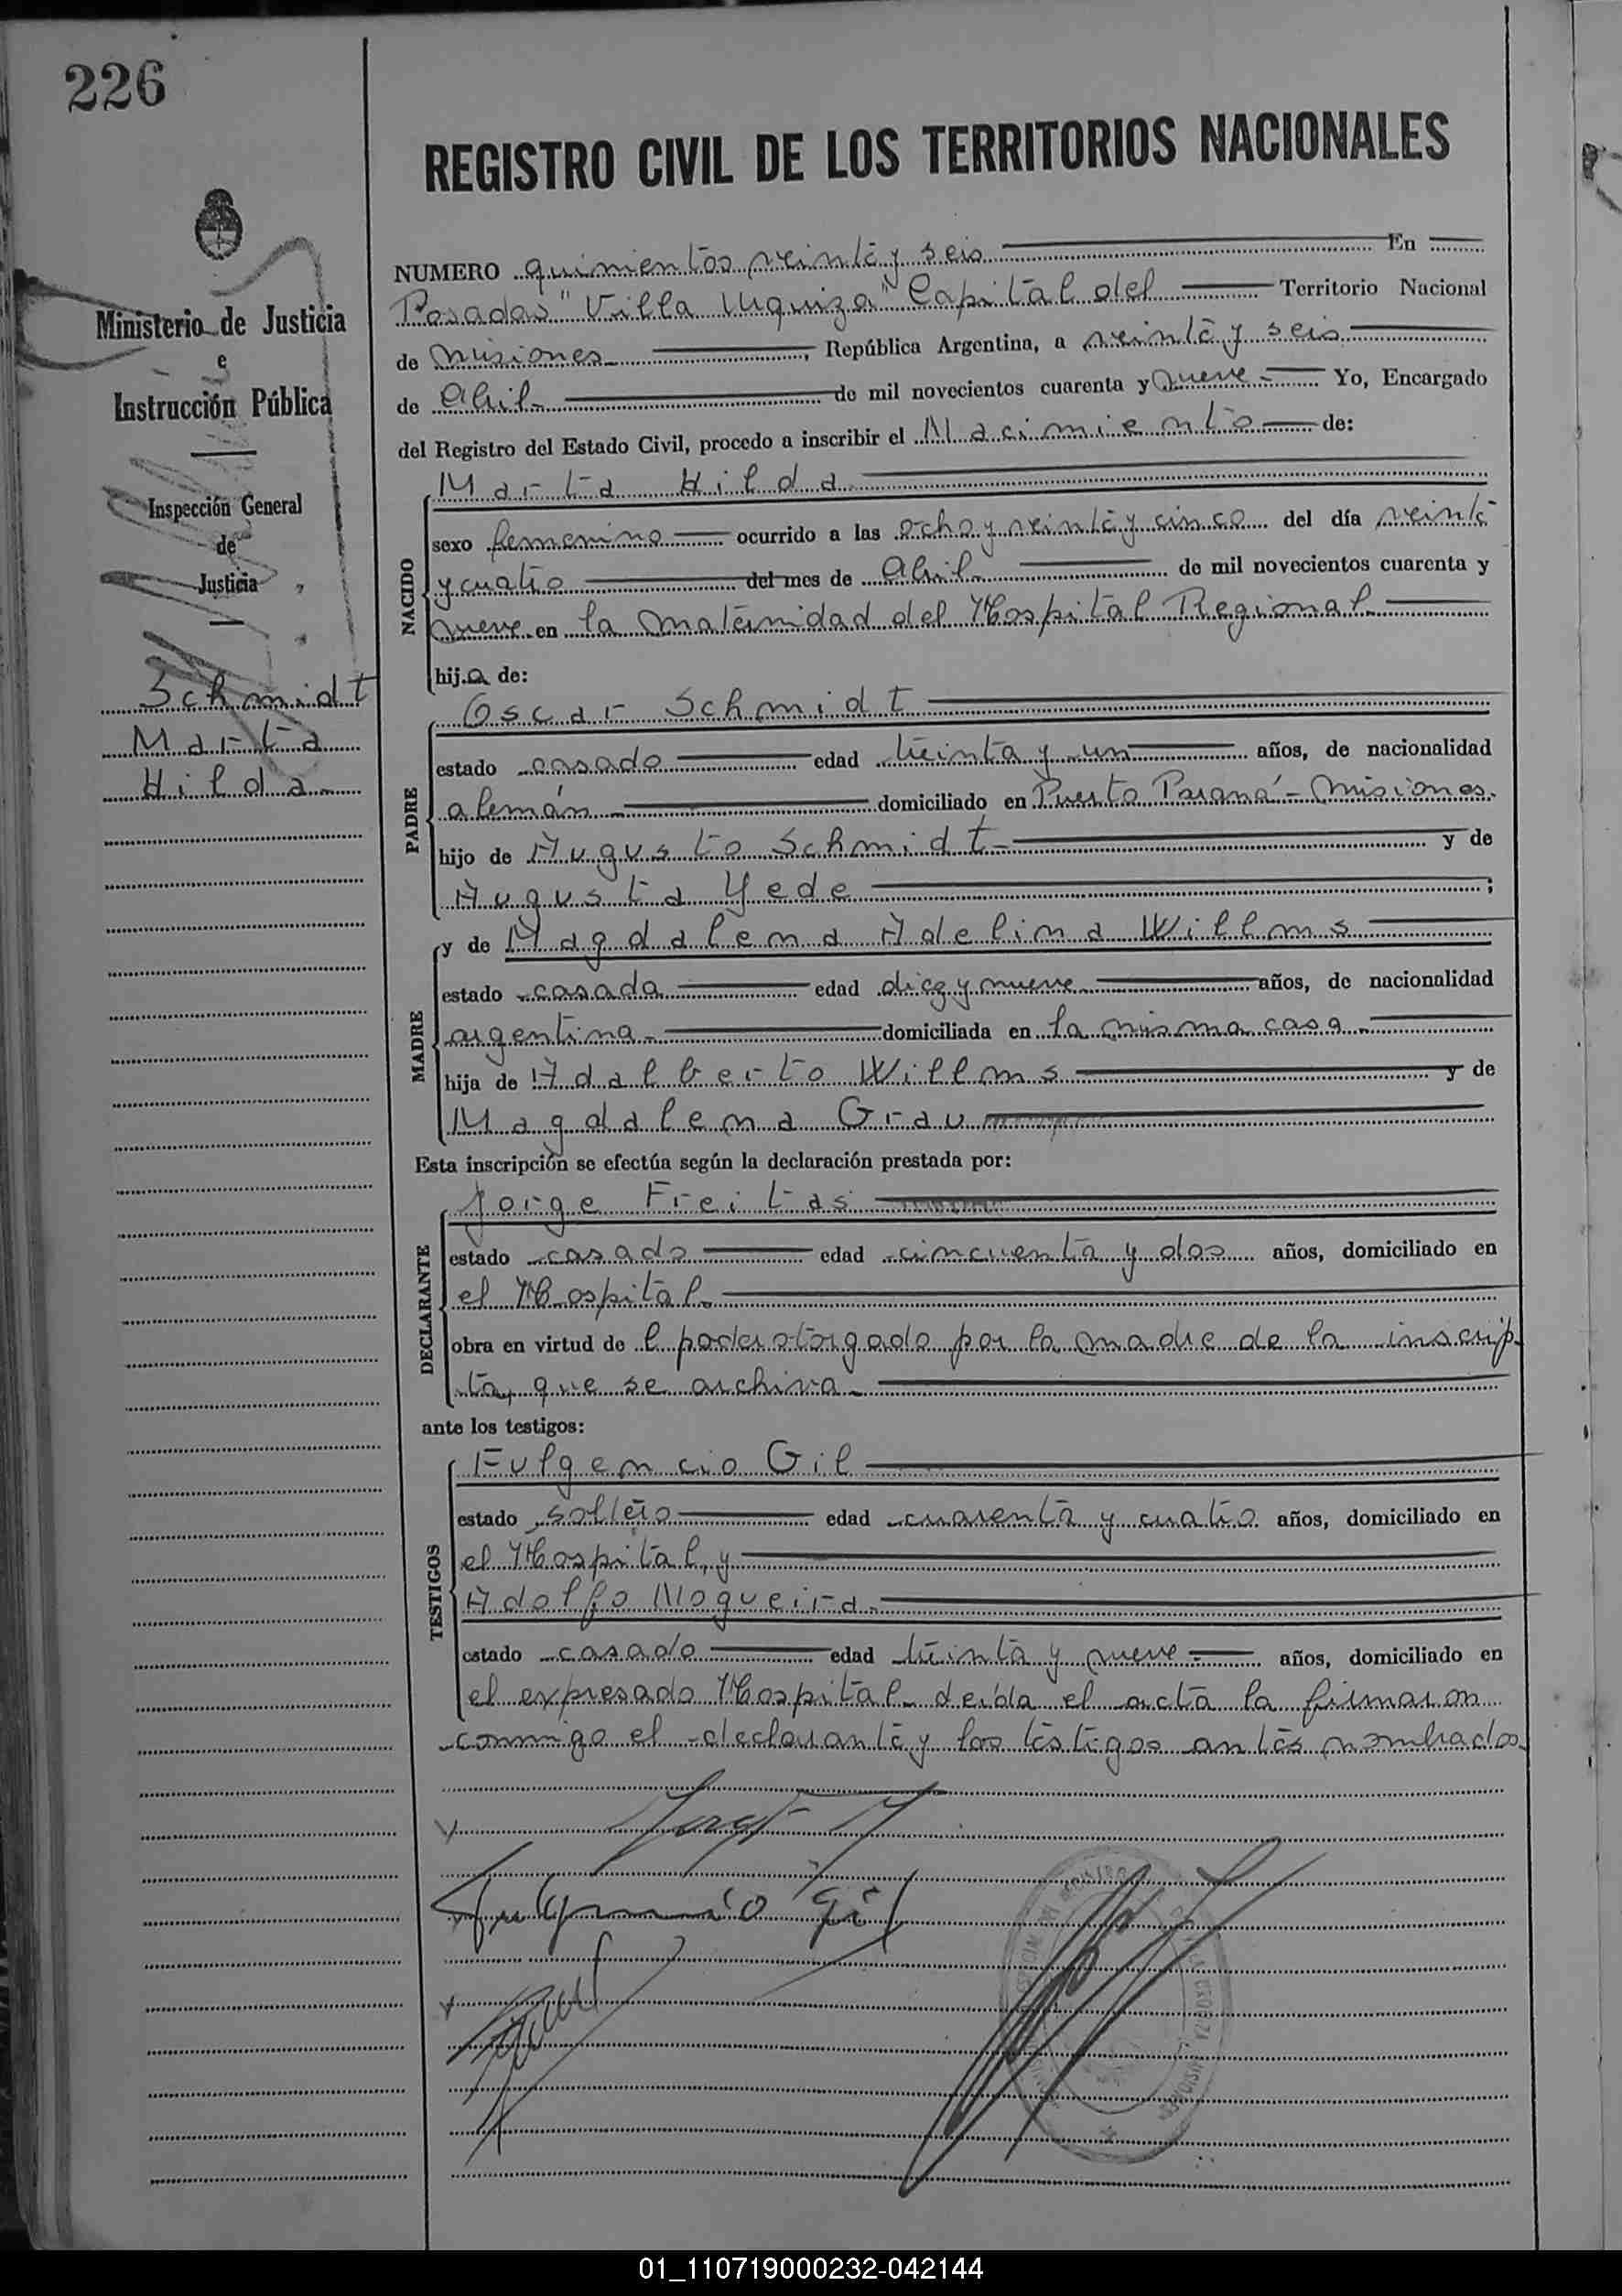 226
REGISTRO CIVIL DE LOS TERRITORIOS NACIONALES
Ministerio de Justicia
e
Instrucción Pública
Inspección General
de
Justicia
Schmidt
Marta
Hilda
NUMERO quinientos veinte y seis En
Posadas "Villa Urquiza" Capital del Territorio Nacional
de Misiones, República Argentina, a veinte y seis
de Abril de mil novecientos cuarenta y nueve Yo, Encargado
del Registro del Estado Civil, procedo a inscribir el Nacimiento de:
NACIDO
Marta Hilda
sexo femenino ocurrido a las ocho y veinte y cinco del día veinte
y cuatro del mes de Abril de mil novecientos cuarenta y
nueve en la Maternidad del Hospital Regional
hija de:
PADRE
Oscar Schmidt
estado casado edad treinta y un años, de nacionalidad
alemán domiciliado en Puerto Paraná - Misiones.
hijo de Augusto Schmidt y de
Augusta Yede;
MADRE
y de Magdalena Adelina Willms
estado casada edad diez y nueve años, de nacionalidad
argentina domiciliada en la misma casa
hija de Adalberto Willms y de
Magdalena Grau
Esta inscripción se efectúa según la declaración prestada por:
DECLARANTE
Jorge Freitas
estado casado edad cincuenta y dos años, domiciliado en
el Hospital
obra en virtud del poder otorgado por la madre de la inscrip-
ta, que se archiva
ante los testigos:
TESTIGOS
Fulgencio Gil
estado soltero edad cuarenta y cuatro años, domiciliado en
el Hospital, y
Adolfo Nogueira
estado casado edad treinta y nueve años, domiciliado en
el expresado Hospital leída el acta la firmaron
conmigo el declarante y los testigos antes nombrados.
Fulgencio Gil
01_110719000232-042144